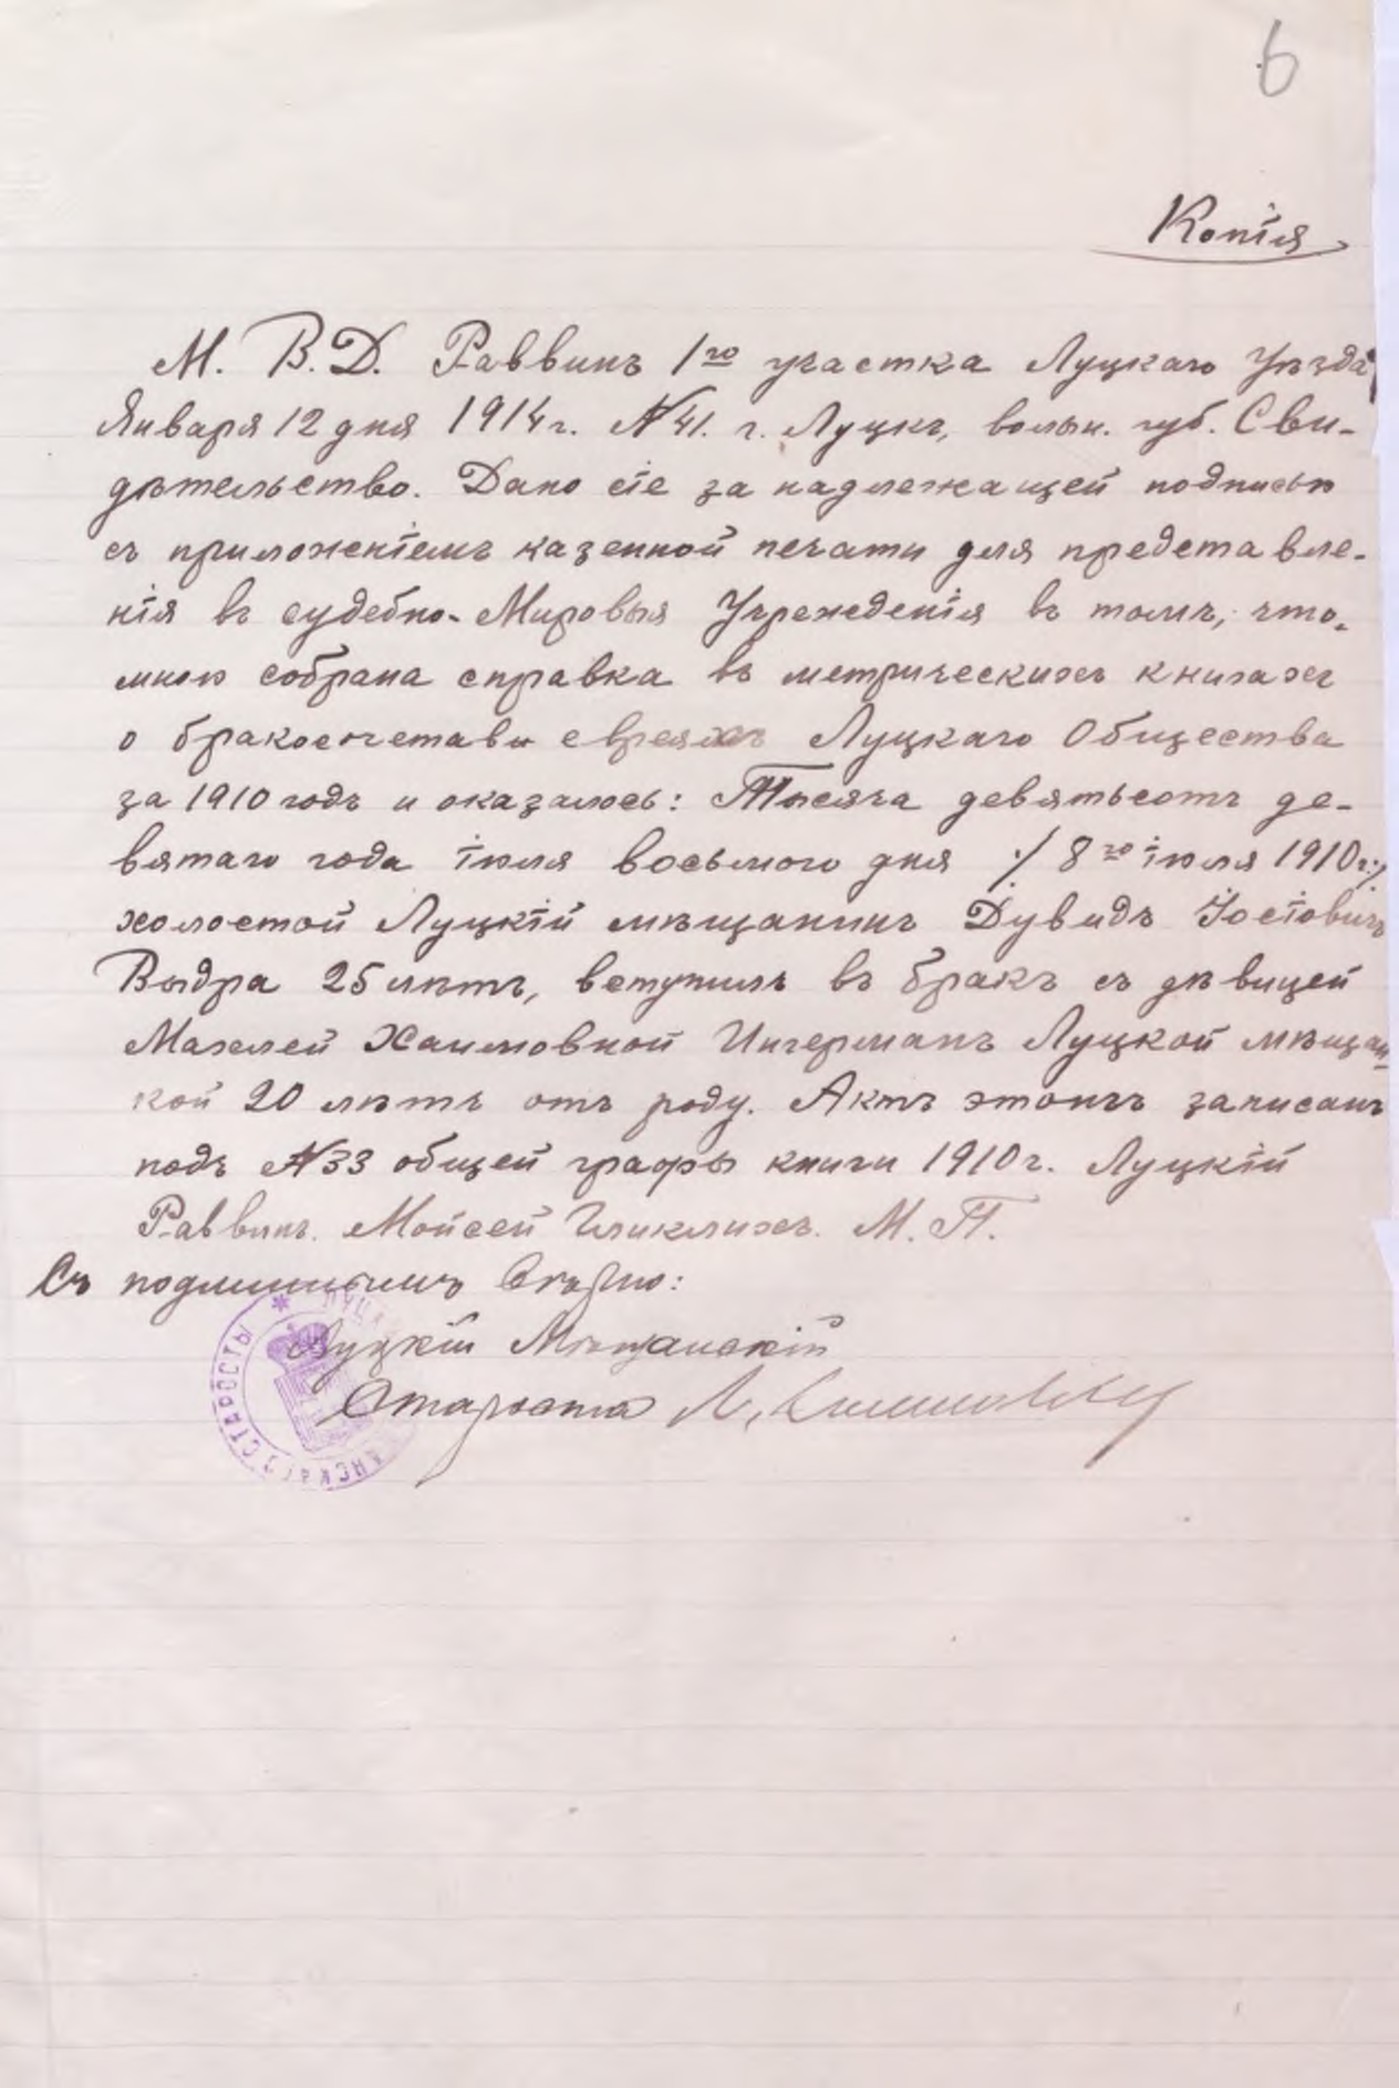 6
Копія
М. В. Д. Раввинъ 1го участка Луцкаго Уѣзда
Января 12 дня 1914 г. №41. г. Луцкъ, волын. губ. Сви-
дѣтельство. Дано сіе за надлежащей подписью
съ приложеніемъ казенной печати для представле-
нія въ судебно-Мировыя Учрежденія въ томъ, что
мною собрана справка въ метрическихъ книгахъ
о бракосочетавш евреяхъ Луцкаго Общества
за 1910 годъ и оказалось: Тысяча девятьсотъ де-
вятаго года іюля восьмого дня ./ 8го іюля 1910 г./.
холостой Луцкій мѣщанинъ Дувидъ Іосіовичъ
Выдра 25 лѣтъ, вступилъ въ бракъ съ дѣвицей
Махлей Хаимовной Ингерманъ Луцкой мѣщан-
кой 20 лѣтъ отъ роду. Актъ этотъ записанъ
подъ №33 общей графы книги 1910 г. Луцкій
Раввинъ. Мойсей Гликлихъ. М. П.
Съ подлиннымъ вѣрно:
Луцкій Мѣщанскій
Староста Л.